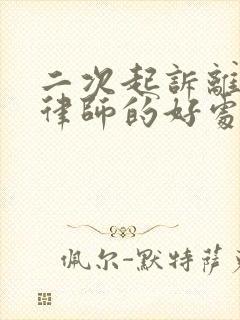 二次起訴離
律師的好處
佩尔-默特萨